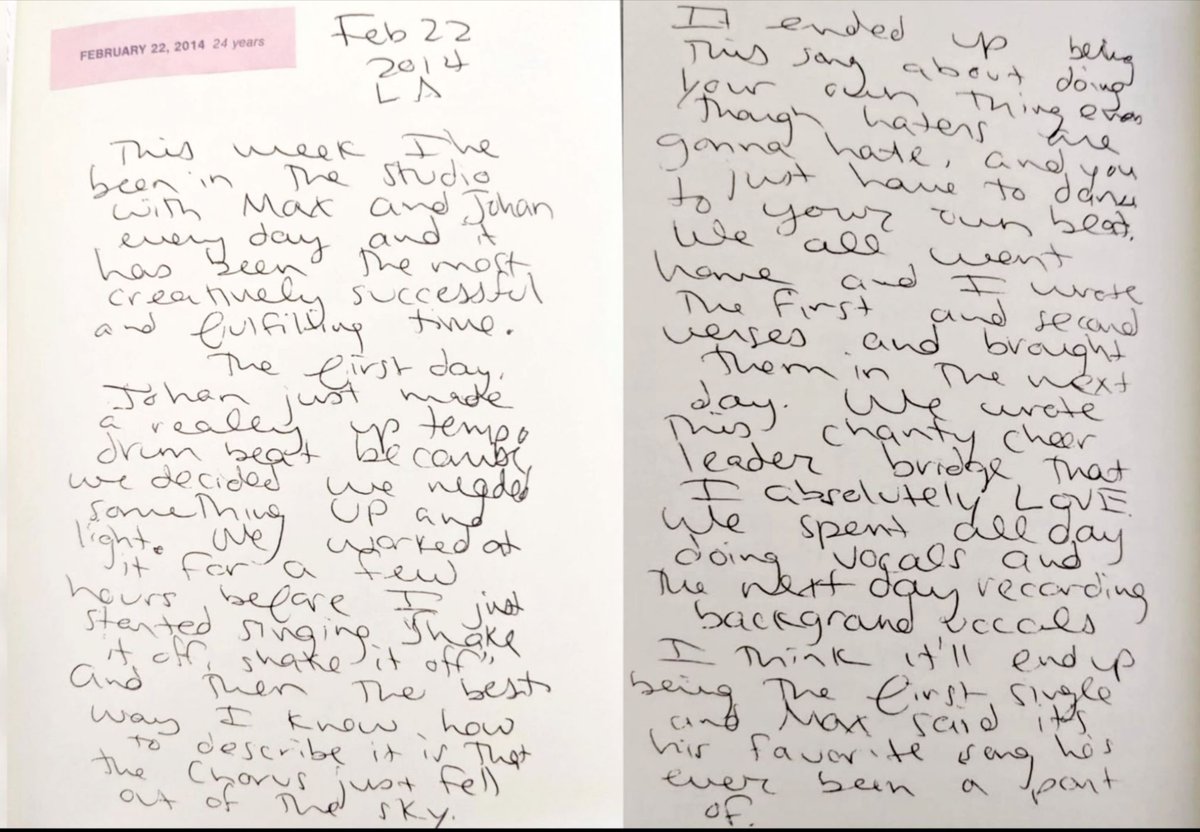 FEBRUARY 22, 2014 24 years
Feb 22
2014
LA
This week I've
been in the studio
with Max and Johan
every day and it
has been the most
creatively successful
and fulfilling time.
The first day,
Johan just made
a really up tempo
drum beat because
we decided we needed
something UP and
light. We worked at
it for a few
hours before I just
started singing "shake
it off, shake it off",
and then the best
way I know how
to describe it is that
the chorus just fell
out of the sky.
It ended up being
this song about doing
your own thing even
though haters are
gonna hate, and you
to just have to dance
to your own beat.
We all went
home and I wrote
the first and second
verses and brought
them in the next
day. We wrote
this chanty cheer
leader bridge that
I absolutely LOVE.
We spent all day
doing vocals and
the next day recording
background vocals
I think it'll end up
being the first single
and Max said it's
his favorite song he's
ever been a part
of.